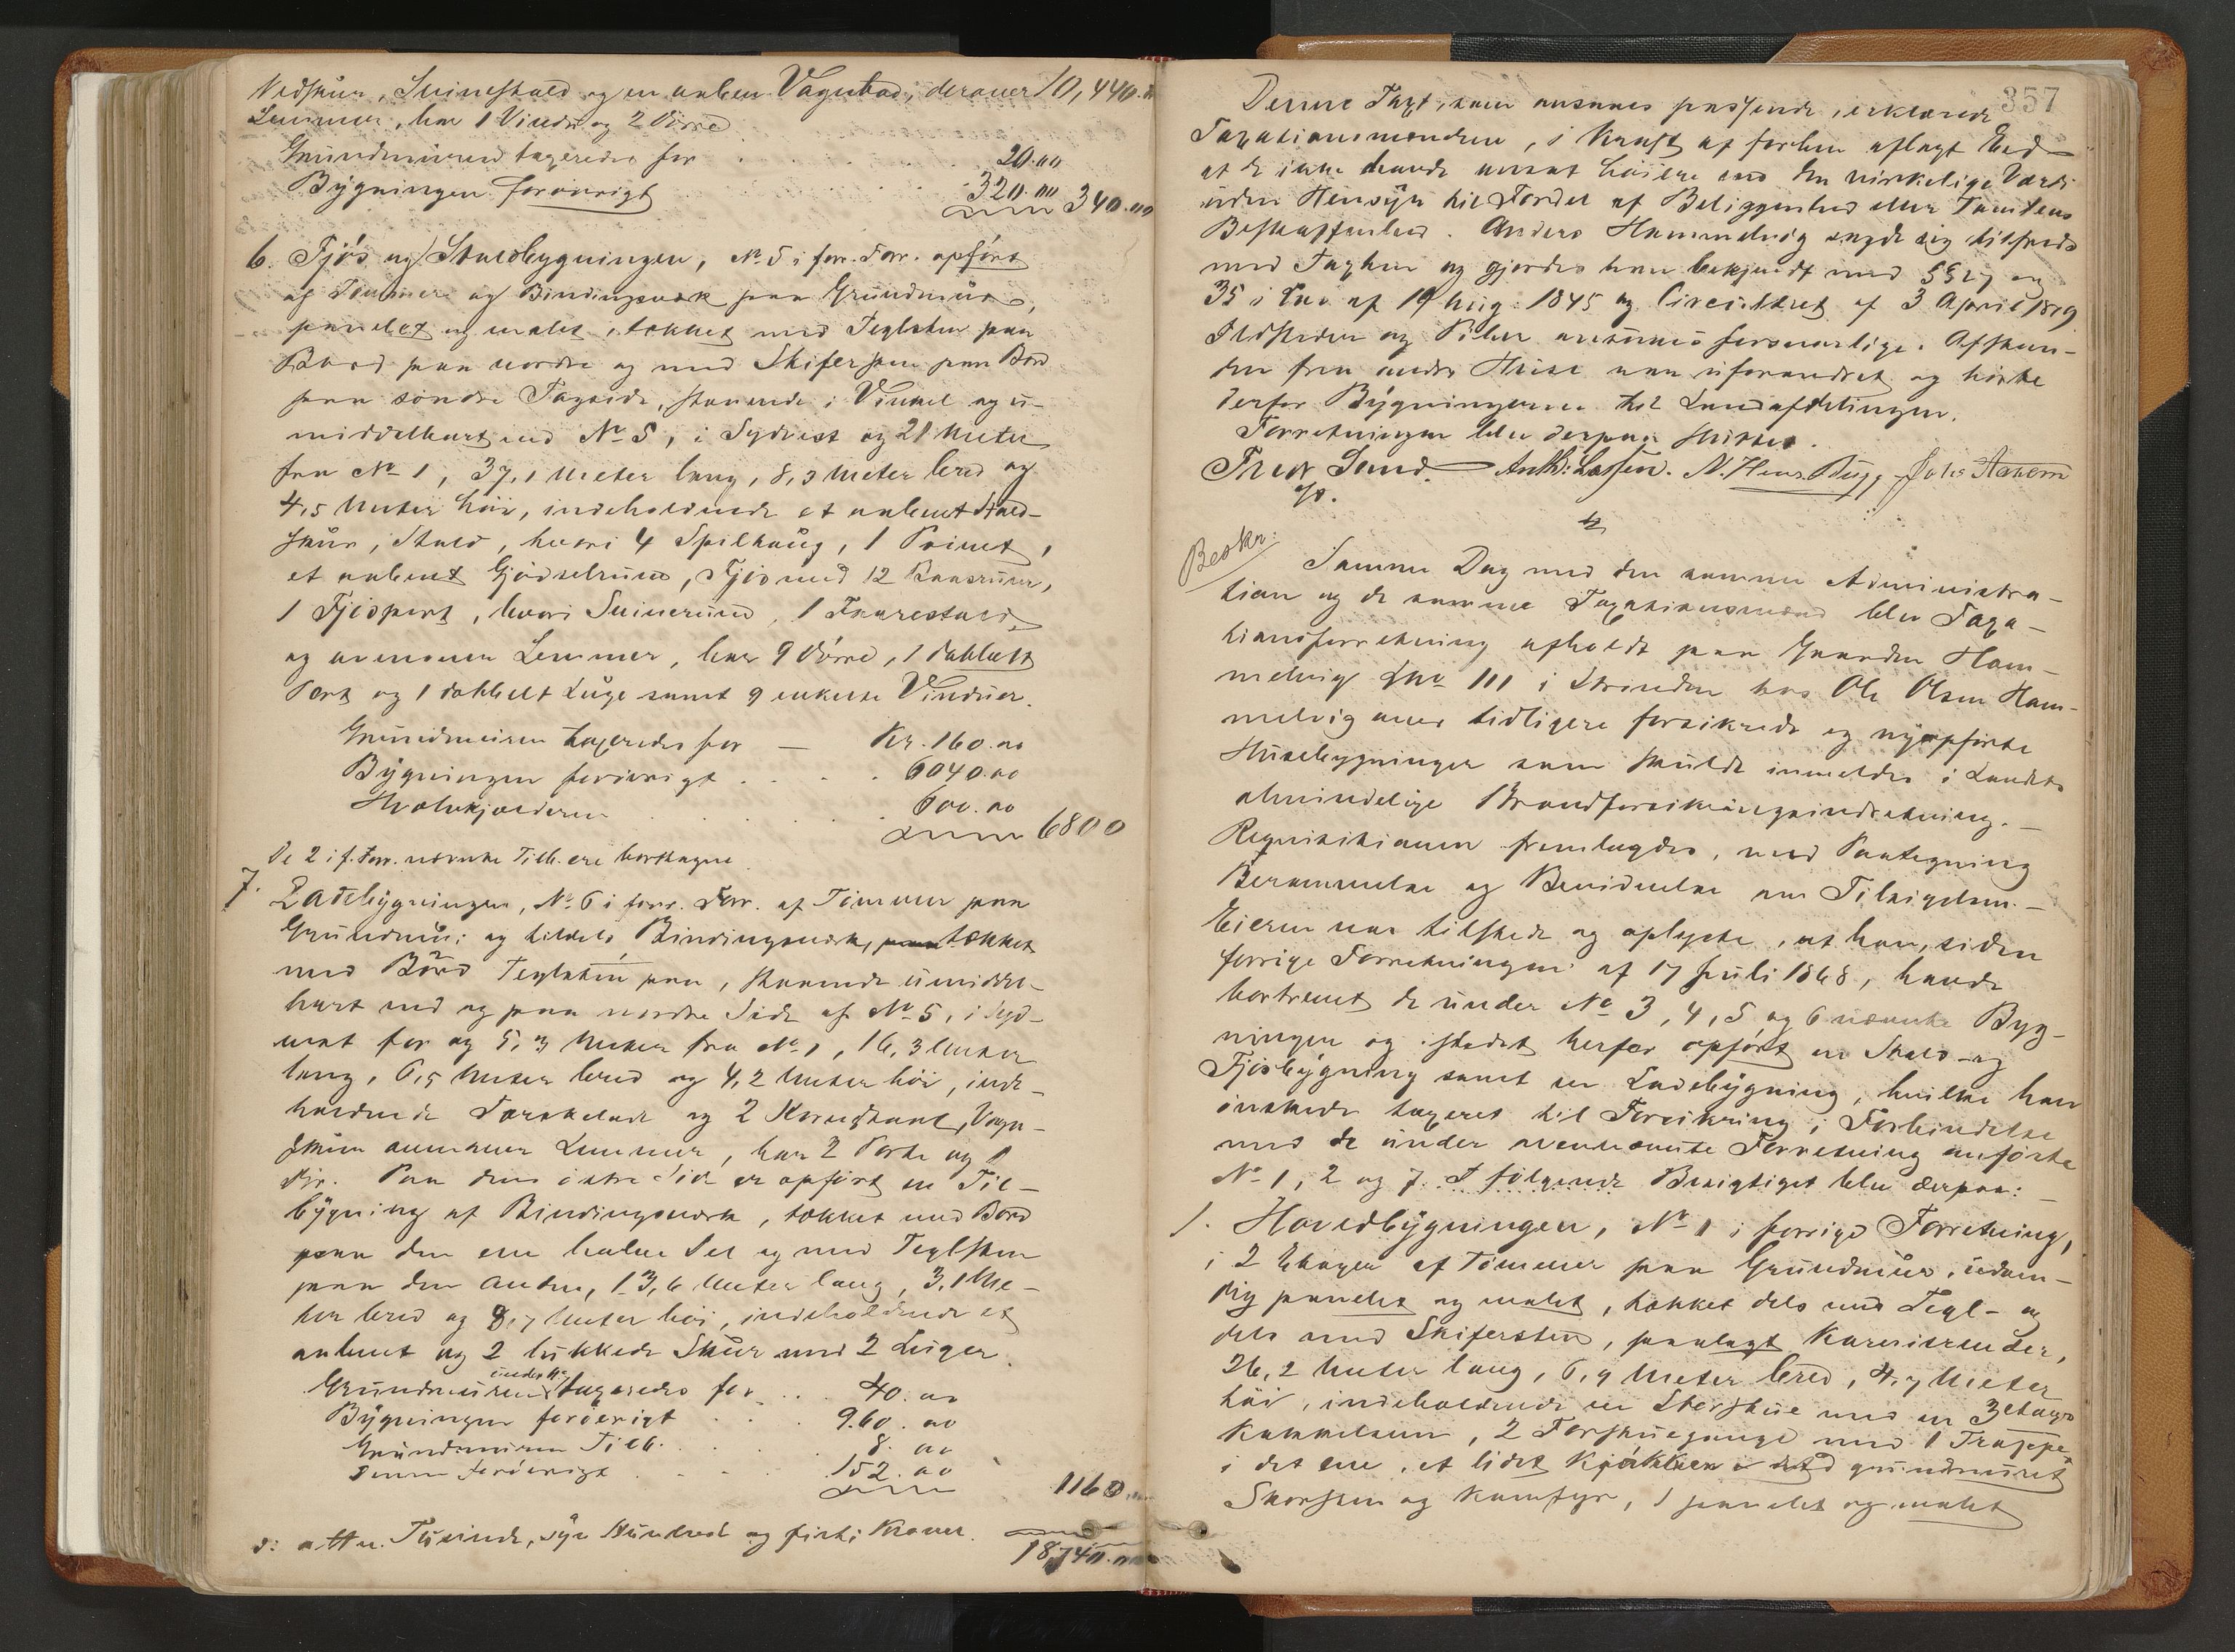 Vedskur, Svinestald og en aaben Vognbod, derover 10,440.00
Lemmer, har 1 Vindu og 2 Dörre
Grundmuren taxeredes for . . . 20.00
Bygningen forövrigt . . . 320.00 340.00
6. Fjös og Staldbygningen, No 5 i forr. Forr. opfört
af Tömmer og Bindingsværk paa Grundmur,
panelet og malet, tækket med Teglsten paa
Bord paa nordre og med Skifersten paa Bord
paa söndre Tagside, staaende i Vinkel og u-
middelbart ved No 5, i Sydvest og 21 Meter
fra No 1, 37,1 Meter lang, 8,3 Meter bred og
4,5 Meter höi, indeholdende et aabent Stald-
skur, Stald, hvori 4 Spiltaug, 1 Privet,
et aabent Gjödselrum, Fjös med 12 Baasrum,
1 Fjösport, hvori Svinerum, 1 Faarestald,
og ovenover Lemmer, har 9 Dörre, 1 dobbelt
Port og 1 dobbelt Luge samt 9 enkelte Vinduer.
Grundmuren taxeredes for — Kr. 160.00
Bygningen forövrigt . . . 6040.00
Hvælvkjælderen . . . 600.00
6800
De 2 i f. Forr. nævnte Tilb. ere borttagne.
7. Ladebygningen, No 6 i forr. Forr. af Tömmer paa
Grundmur og tildels Bindingsværk, tækket
med Bord Teglsten paa, staaende umiddel-
bart ved og paa nordre Side af No 5, i Syd-
vest for og 5,3 Meter fra No 1, 16,3 Meter
lang, 6,5 Meter bred og 4,2 Meter höi, inde-
holdende Tærskelade og 2 Kornstaal, Vogn-
skur ovenover Lemmer, har 2 Porte og 1
Dör. Paa dens östre Side er opfört en Til-
bygning af Bindingsværk, tækket med Bord
paa den ene halve Del og med Teglsten
paa den anden, 13,6 Meter lang, 3,1 Me-
ter bred og 2,7 Meter höi, indeholdende et
aabent og 2 lukkede Skur med 2 Luger.
Grundmuren under No 7 taxeredes for . . 40.00
Bygningen forövrigt . . . 960.00
Grundmuren Tilb. . . . 8.00
Denne forövrigt . . . 152.00
1160.00
o: atten Tusinde, syv Hundrede og firti Kroner. 18,740.00
357
Denne Taxt, som ansaaes passende, erklærede
Taxationsmændene, i Kraft af forhen aflagt Eed
at de ikke havde ansat höiere end den virkelige Værdi
uden Hensyn til Fordel af Beliggenhed eller Tomtens
Beskaffenhed. Anders Hammelvig sagde sig tilfreds
med Taxten og gjordes han bekjendt med §§ 27 og
35 i Lov af 19 Aug. 1845 og Circulæret af 3 April 1879
Ildsteder og Piber ansaaes forsvarlige. Afstan-
den fra andre Huse var uforandret og hörte
derfor Bygningerne til Landafdelingen.
Forretningen blev derpaa sluttet.
Fredr Lund. Anth: Lassen. N. Hens. Bugge Johs Aakern
Beskr:
Samme Dag med den samme Administra-
tion og de samme Taxationsmænd blev Taxa-
tionsforretning afholdt paa Gaarden Ham-
melvig Lno 111 i Strinden hos Ole Olsen Ham-
melvig over tidligere forsikrede og nyopförte
Husebygninger som skulde inmeldes i Landets
almindelige Brandforsikringsindretning.—
Requisitionen fremlagdes, med Paategning
Berammelse og Bevidnelse om Tilsigelsen.—
Eieren var tilstede og oplyste, at han, siden
forrige Forretningen af 17 Juli 1868, havde
bortrevet de under No 3, 4, 5 og 6 nævnte Byg-
ninger og istedet herfor opfört en Stald- og
Fjösbygning samt en Ladebygning, hvilke han
önskede taxeret til Forsikring i Forbindelse
med de under ovennævnte Forretning anförte
No 1, 2 og 7. I fölgende Besigtiget blev derpaa:—
1. Hovedbygningen, No 1 i forrige Forretning,
i 2 Etager af Tömmer paa Grundmur, udven-
dig panelet og malet, tækket dels med Tegl- og
dels med Skifersten, paalagt Karnisrender,
26,2 Meter lang, 6,9 Meter bred, 4,7 Meter
höi, indeholdende en Storstue med en 3 Etages
Kakkelovn, 2 Forstuegange med 1 Trappe
i det ene, et lidet Kjökken med grundmuret
Skorsten og Komfyr, 1 panelet og malet